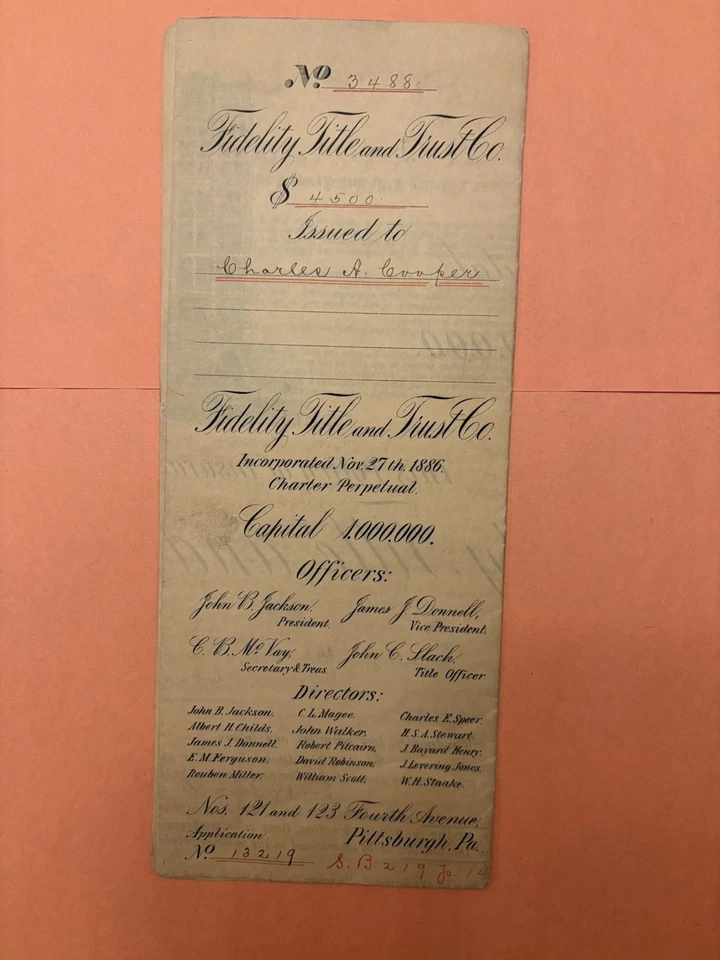 No 3488
Fidelity Title and Trust Co.
$ 4500.
Issued to
Charles A. Cooper
Fidelity Title and Trust Co.
Incorporated Nov. 27th. 1886.
Charter Perpetual.
Capital 1.000.000.
Officers:
John B. Jackson, James J. Donnell,
President. Vice President.
C. B. McVay, John C. Slack,
Secretary & Treas. Title Officer
Directors:
John B. Jackson. C. L. Magee. Charles E. Speer.
Albert H. Childs. John Walker. H. S. A. Stewart.
James J. Donnell. Robert Pitcairn. J. Bayard Henry.
E. M. Ferguson. David Robinson. J. Levering Jones.
Reuben Miller. William Scott. W. H. Staake.
Nos. 121 and 123 Fourth Avenue,
Application Pittsburgh, Pa.
No 13219 S. B. 219 p. 14